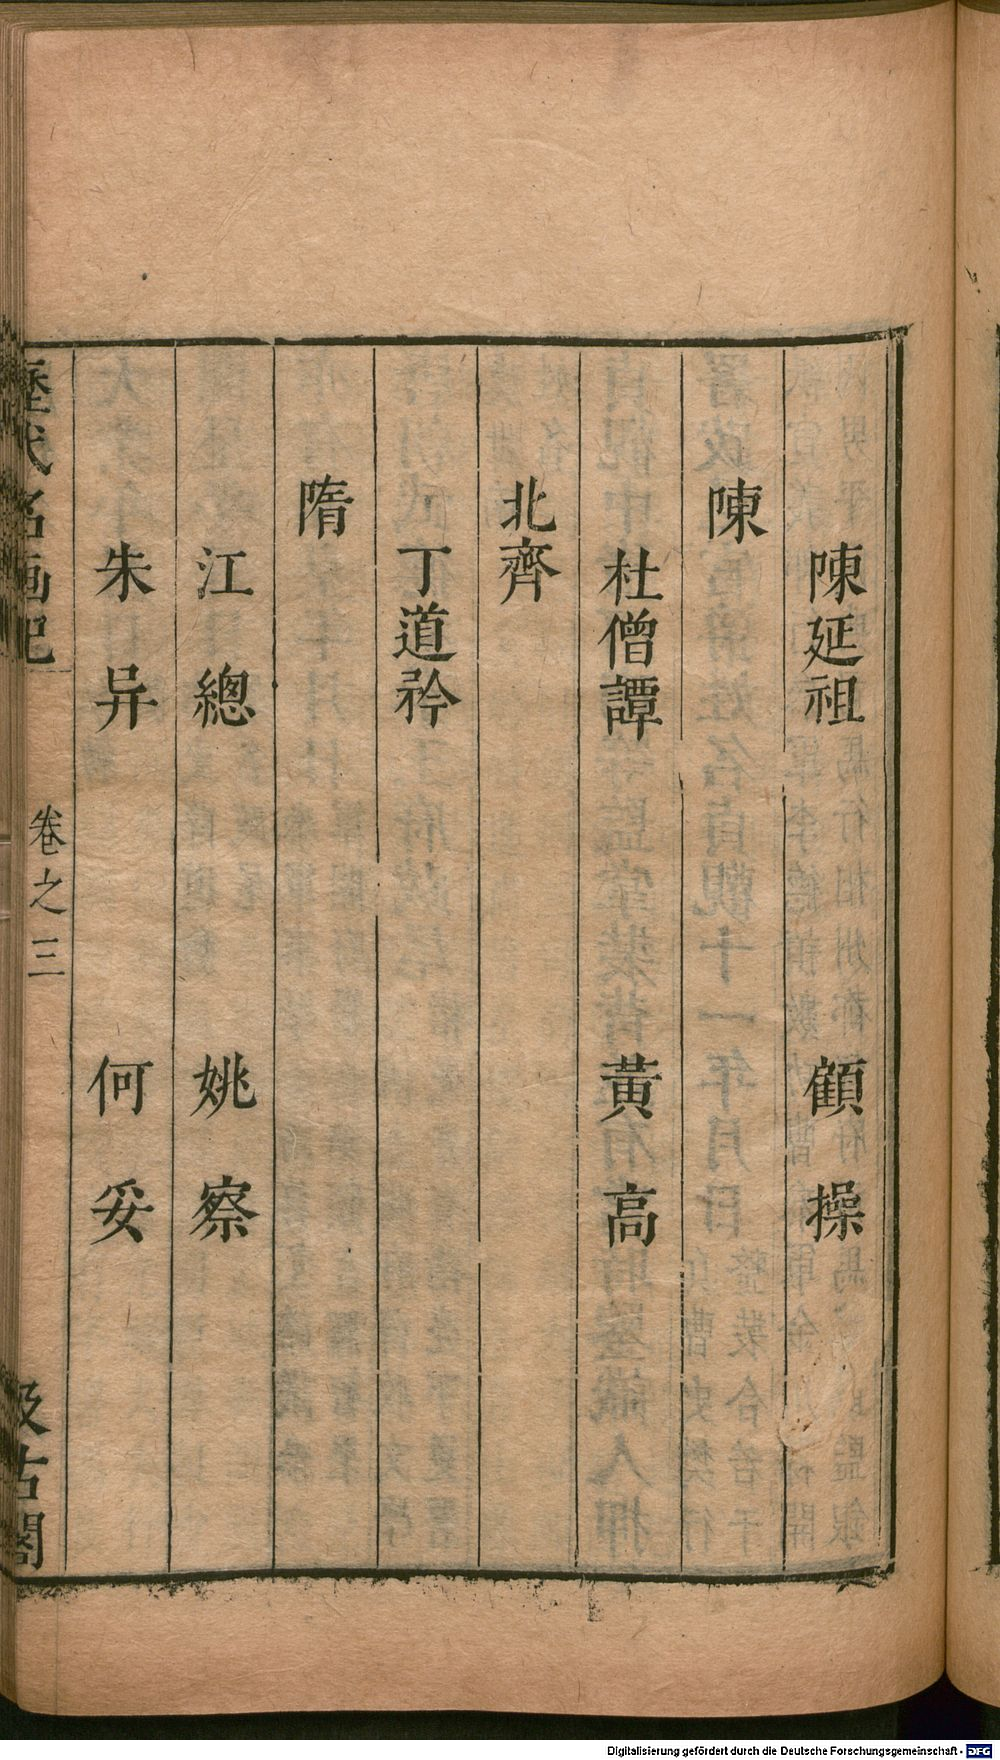 陳延祖　顧操
陳
杜僧譚　黃高
北齊
丁道矜
隋
江總　姚察
朱异　何妥
歷代名畫記　卷之三　汲古閣
Digitalisierung gefördert durch die Deutsche Forschungsgemeinschaft - DFG